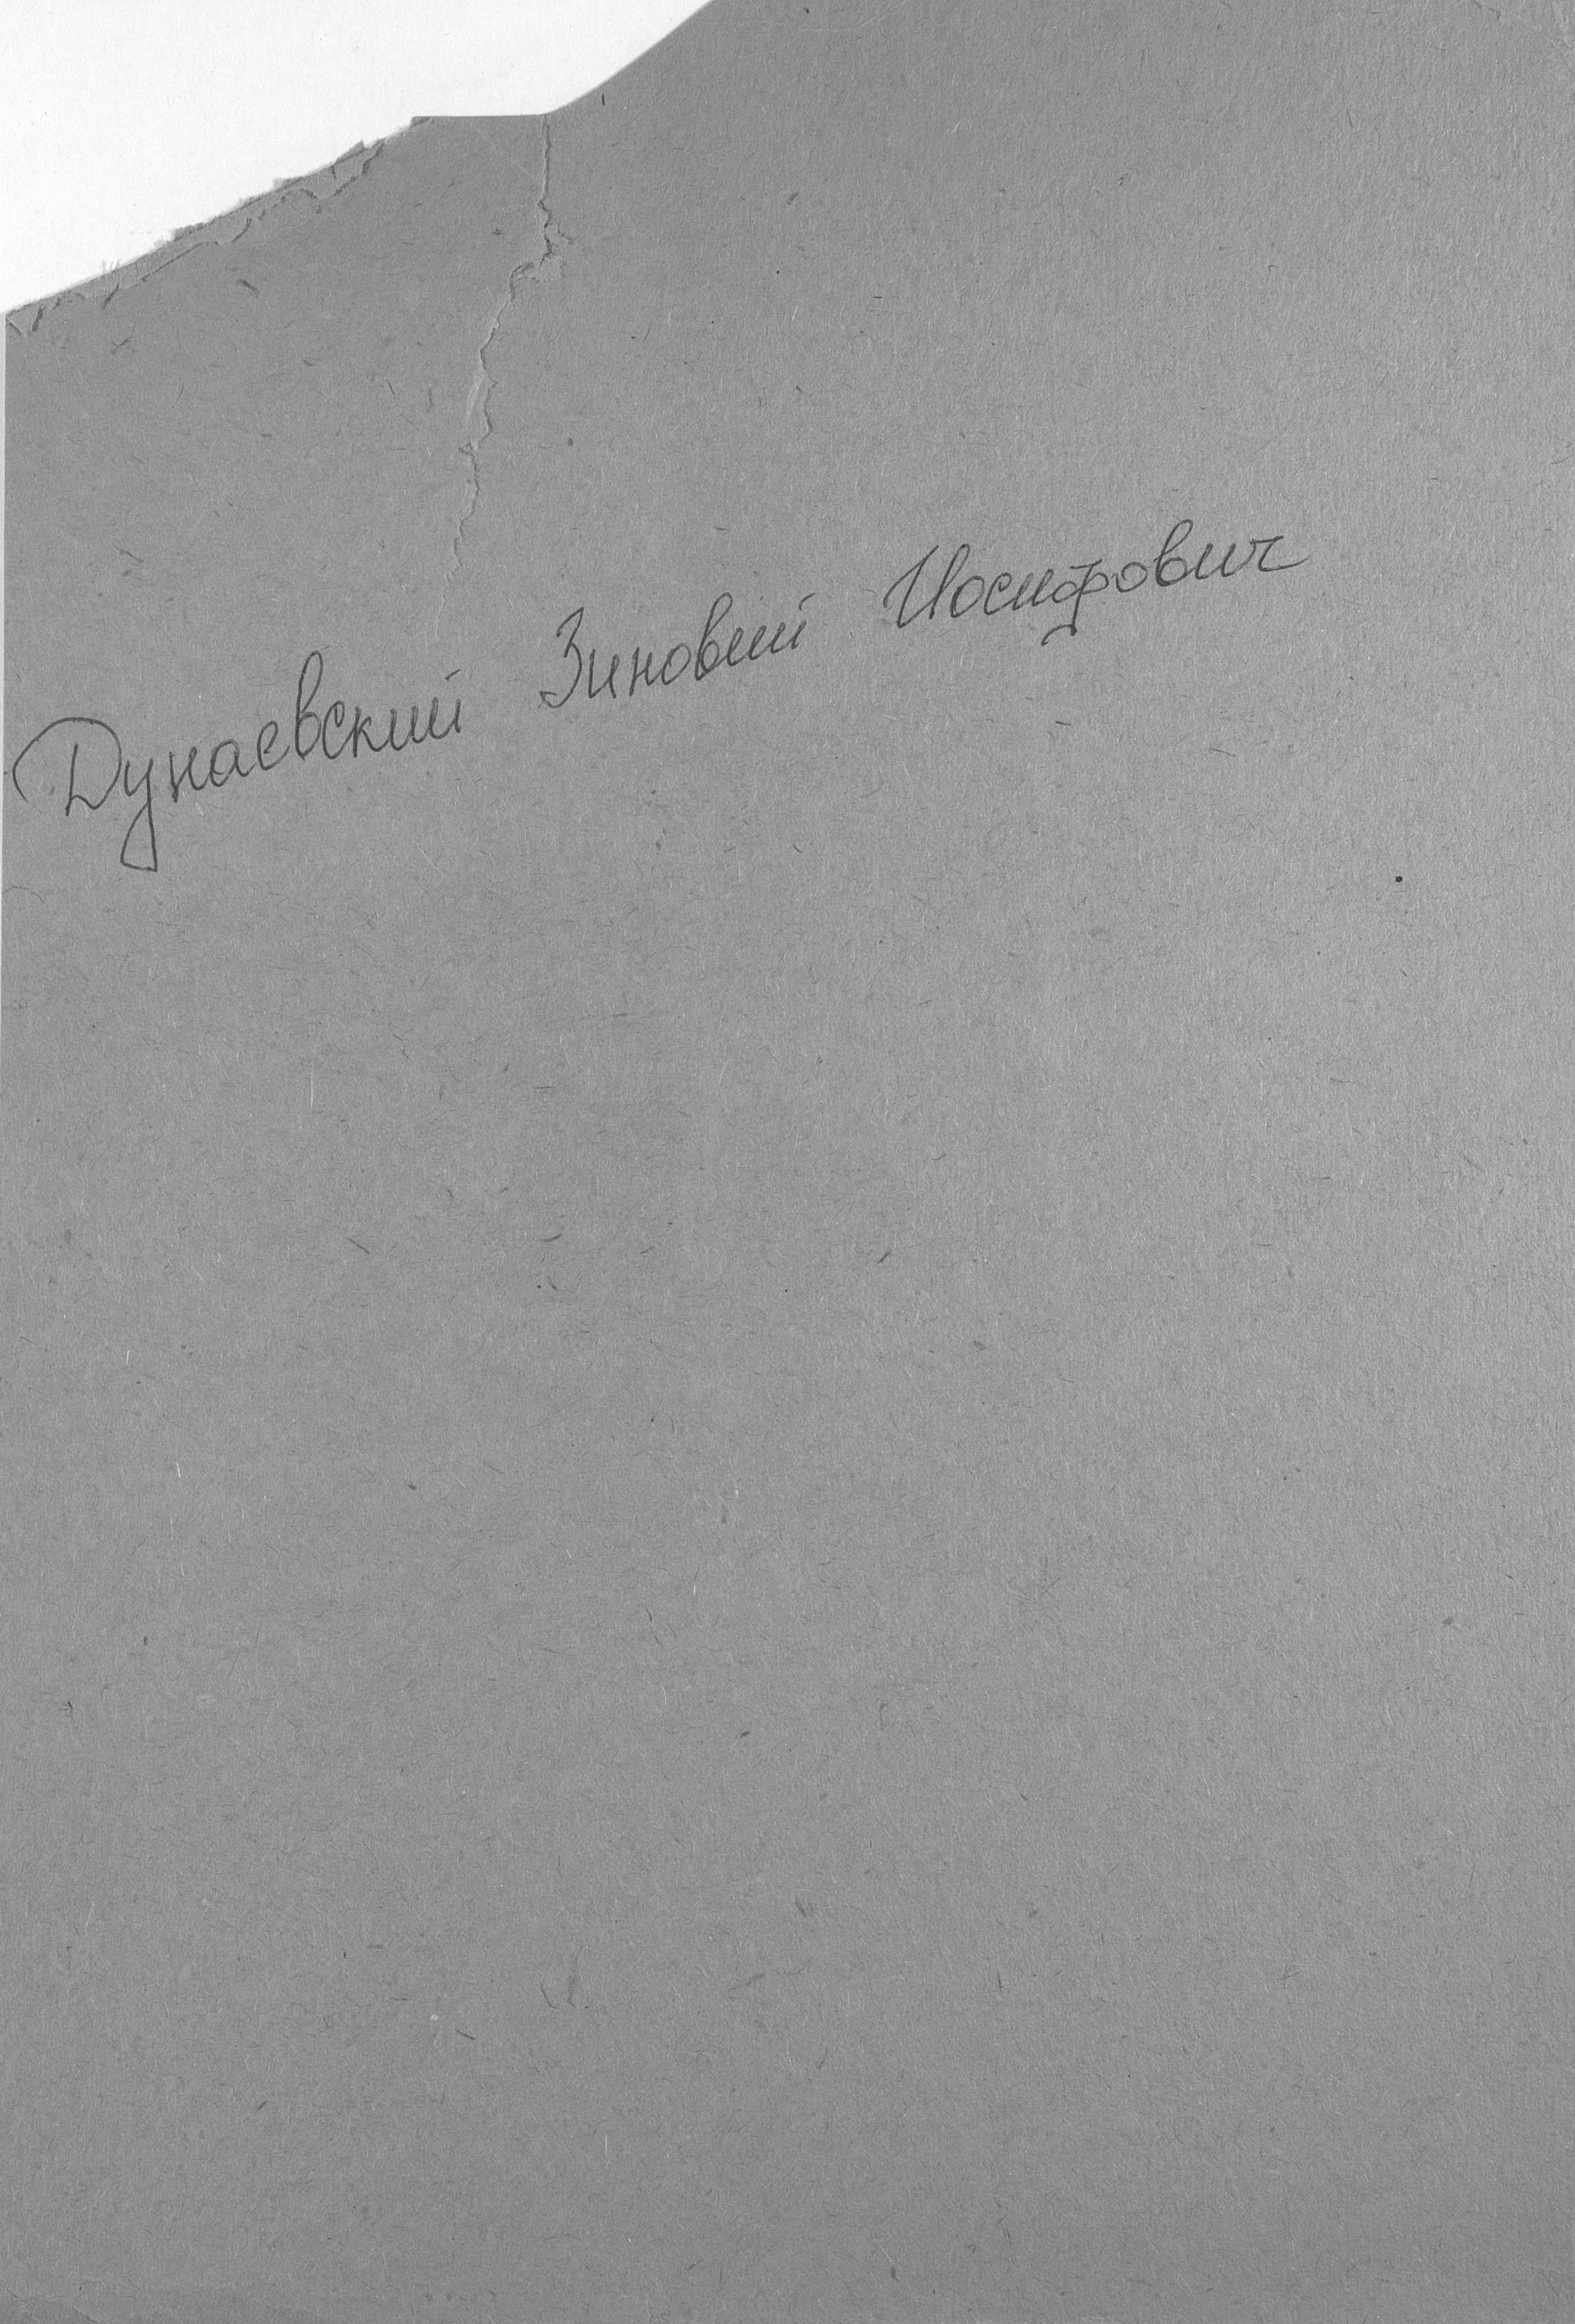 Дунаевский Зиновий Иосифович